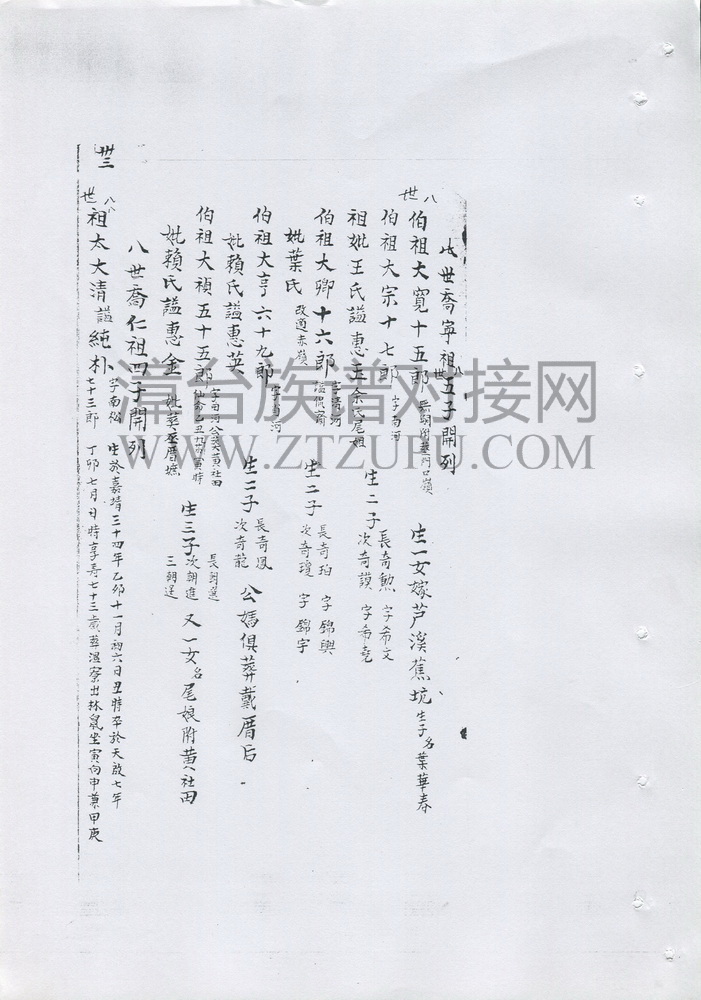 世喬寧祖五子開列
八世
伯祖大寬十五郎 生一女嫁芦溪蕉坑 生子名葉華春
伯祖大宗十七郎 字南河 生二子 長奇勲 字希文 次奇謨 字希堯
祖妣王氏謚惠
伯祖大卿十六郎 生二子 長奇珀 字錦興 次奇瓊 字錦宇
妣葉氏 改適赤嶺
伯祖大亨六十九郎 字南河 生二子 長奇鳳 次奇龍 公媽俱葬戴厝后
妣賴氏謚惠英
伯祖大禎五十五郎 字南河公葬黄社田 生三子 次朝進 三朝逞 又一女名尾娘附黄社田
妣賴氏謚惠金
八世喬仁祖四子開列
八世
祖太大清謚純朴 字南松 七十三郎 生於嘉靖三十四年乙卯十一月初六日丑時卒於天啟七年丁卯七月 日時享寿七十三歲葬温寮出林鼠坐寅向申兼甲庚
卅三
漳台族普对接网
WWW.ZTZUPU.COM